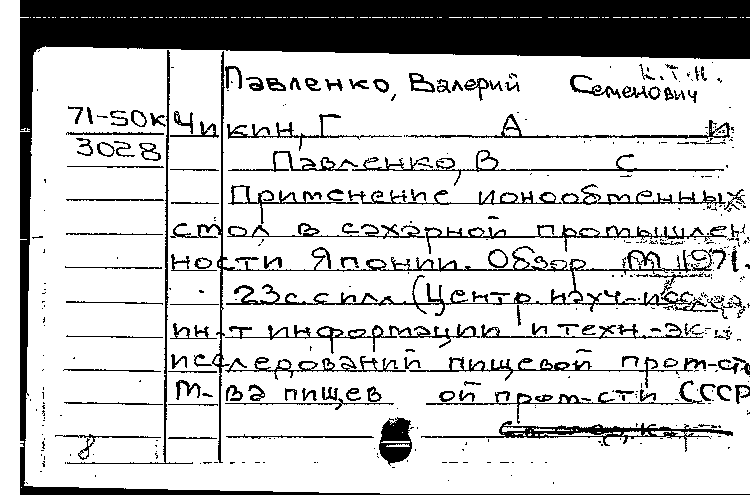 к.т.н.
Павленко, Валерий Семенович
71-50к Чикин, Г А и
3028 Павленко, В С
Применение ионообменных
смол в сахарной промышлен
ности Японии. Обзор. М 1971.
23с. с илл. (Центр. науч.-исслед
ин-т информации и техн.-эк-
исследований пищевой пром-сти
М-ва пищев ой пром-сти СССР
8